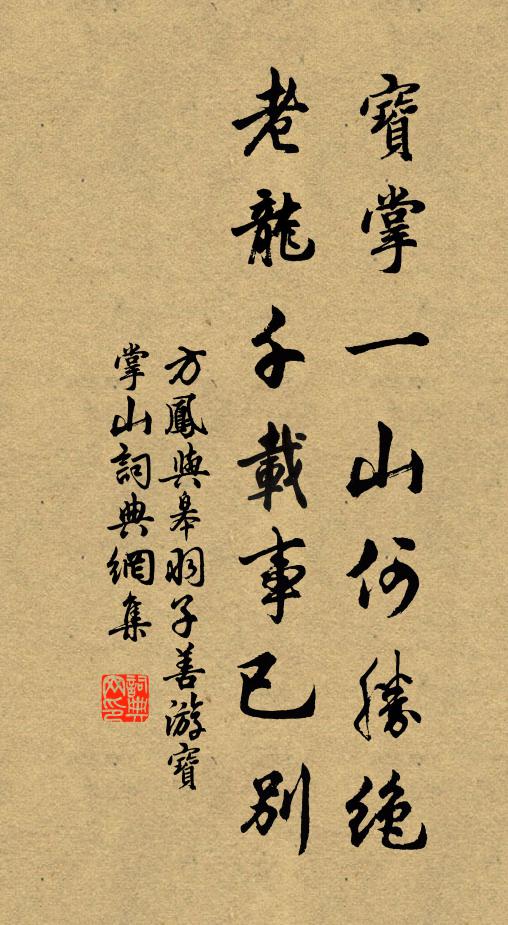 寶掌一山何勝絕
老龍千載事已別
方鳳與皋羽子善游寶
掌山詞典網集
詞典